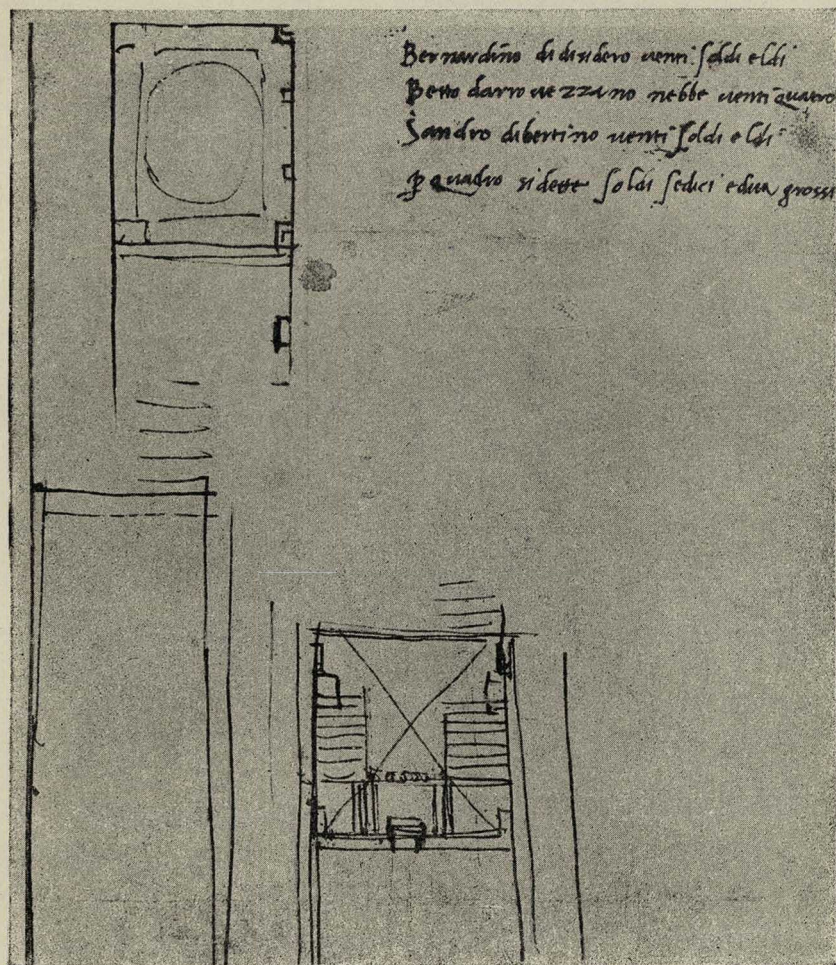 Bernardino di disidero uenti soldi e ldi
Betto darrouezzano nebbe uentiquatro
Sandro dibertino uenti soldi e ldi
quadro si dette soldi sedici e dua grossi